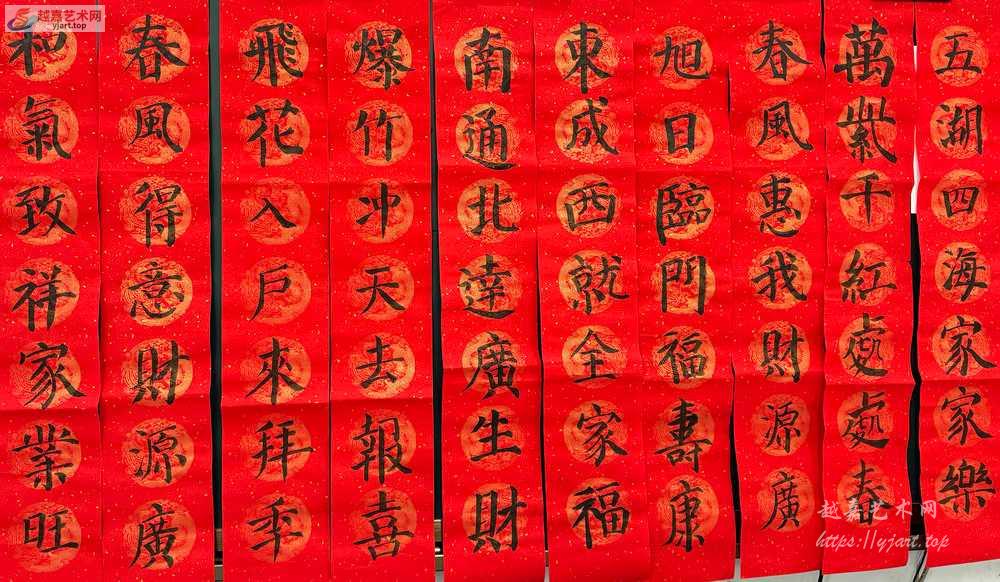 五湖四海家家樂
萬紫千紅處處春
春風惠我財源廣
旭日臨門福壽康
東成西就全家福
南通北達廣生財
爆竹冲天去報喜
飛花入戶來拜秊
春風得意財源廣
和氣致祥家業旺
越嘉艺术网
yjart.top
越嘉艺术网
https://yjart.top